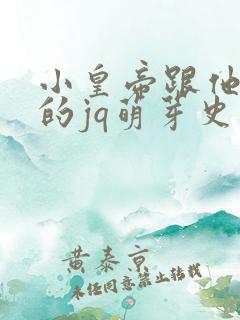 小皇帝跟他
的jq萌芽史
黄泰京
未经同意禁止转载